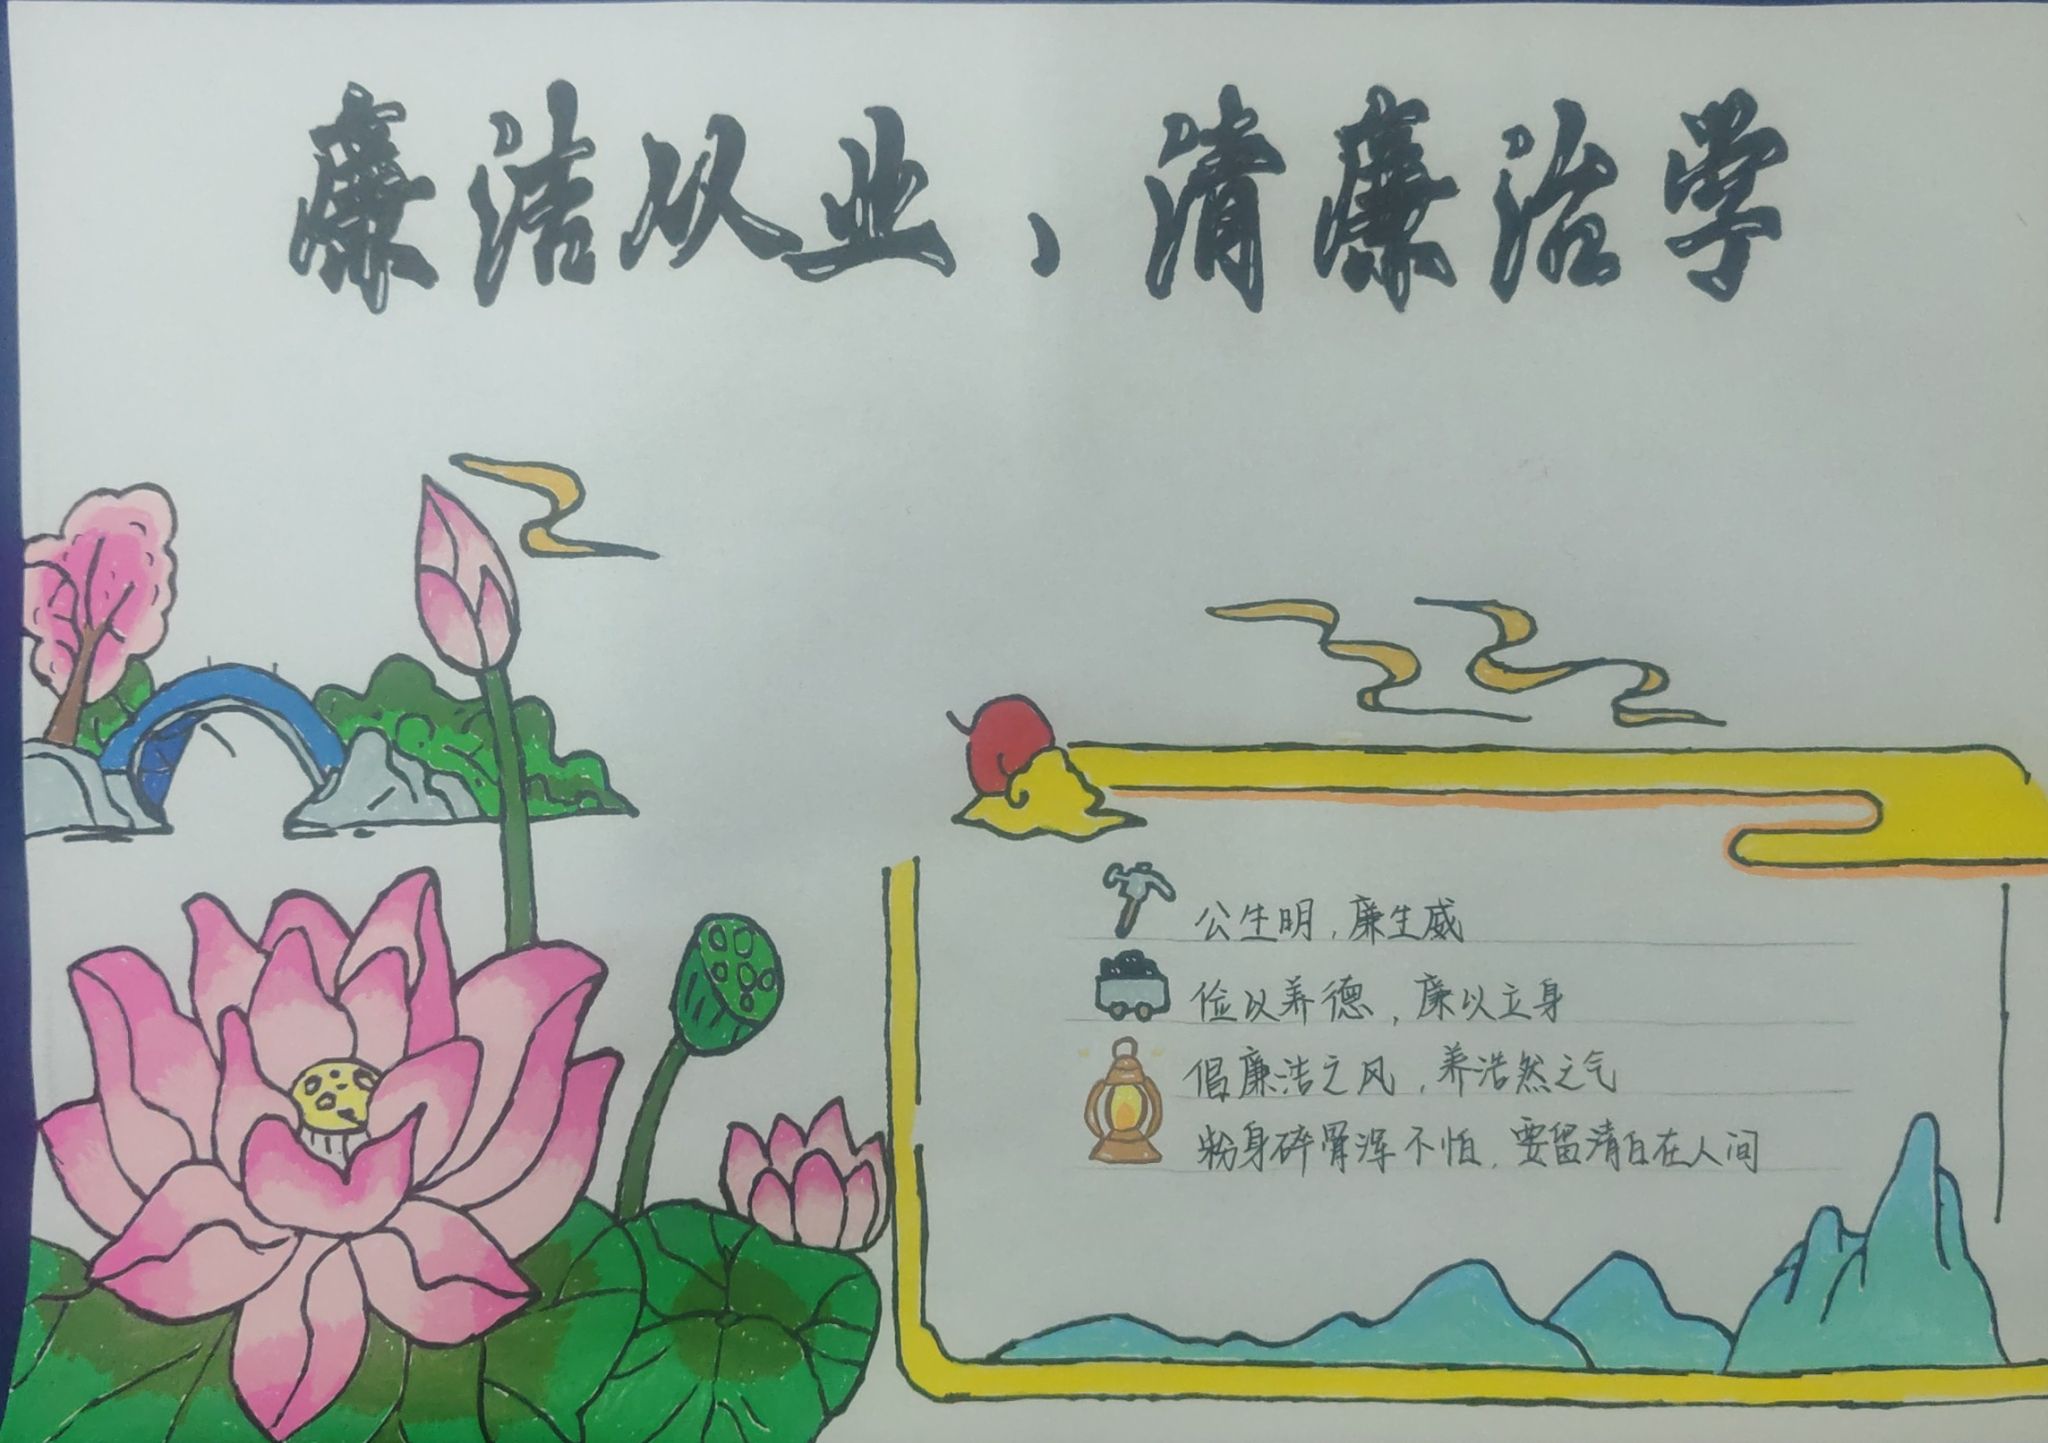 廉洁以业、清廉治学
公生明，廉生威
俭以养德，廉以立身
倡廉洁之风，养浩然之气
粉身碎骨浑不怕，要留清白在人间